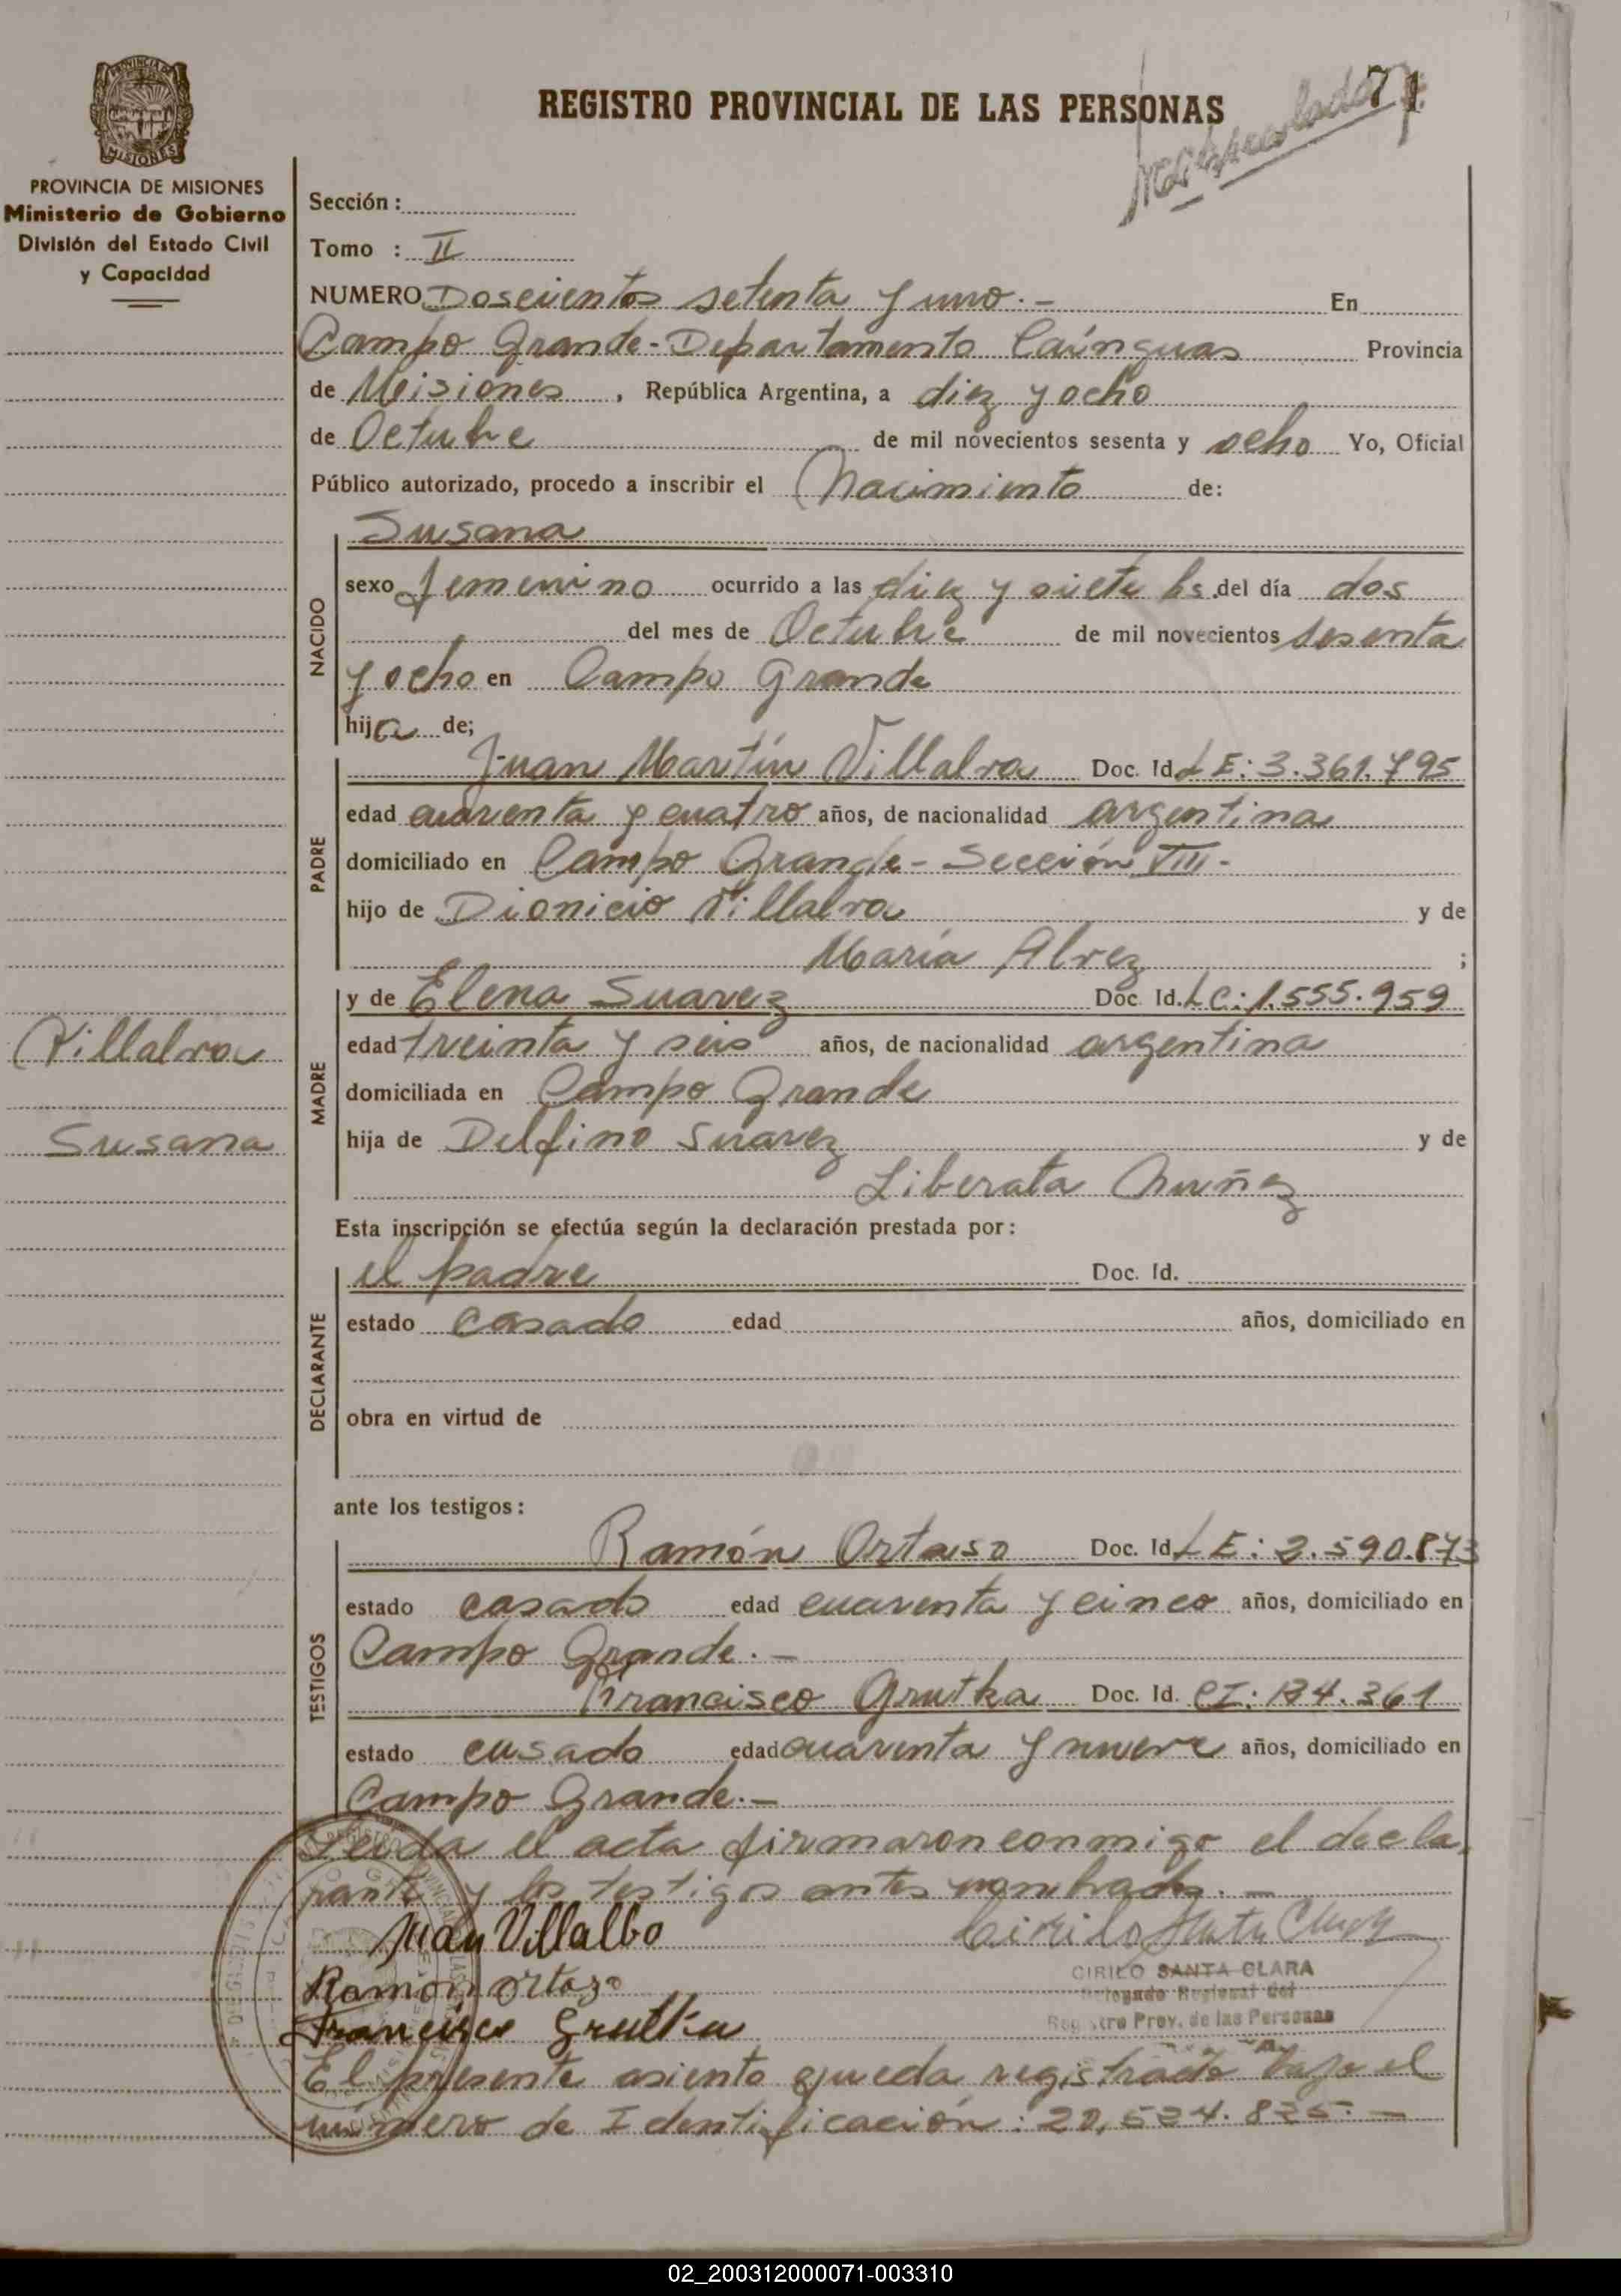 PROVINCIA DE
MISIONES
PROVINCIA DE MISIONES
Ministerio de Gobierno
División del Estado Civil
y Capacidad
REGISTRO PROVINCIAL DE LAS PERSONAS
71
Sección :
Tomo : II
NUMERO Doscientos setenta y uno.- En
Campo Grande-Departamento Caínguas Provincia
de Misiones, República Argentina, a diez y ocho
de Octubre de mil novecientos sesenta y ocho Yo, Oficial
Público autorizado, procedo a inscribir el Nacimiento de:
NACIDO
Susana
sexo femenino ocurrido a las diez y siete hs. del día dos
del mes de Octubre de mil novecientos sesenta
y ocho en Campo Grande
hija de;
PADRE
Juan Martín Villalva Doc. Id. LE: 3.361.795
edad cuarenta y cuatro años, de nacionalidad argentina
domiciliado en Campo Grande- Sección VIII-
hijo de Dionicio Villalva y de
María Alvez ;
MADRE
y de Elena Suarez Doc. Id. LC: 1.555.959
edad treinta y seis años, de nacionalidad argentina
domiciliada en Campo Grande
hija de Delfino Suarez y de
Liberata Nuñez
Villalva
Susana
Esta inscripción se efectúa según la declaración prestada por:
DECLARANTE
el padre Doc. Id.
estado casado edad años, domiciliado en
obra en virtud de
ante los testigos:
TESTIGOS
Ramón Ortaso Doc. Id LE: 2.590.873
estado casado edad cuarenta y cinco años, domiciliado en
Campo Grande.-
Francisco Grutka Doc. Id. CI: 134.361
estado casado edad cuarenta y nueve años, domiciliado en
Campo Grande.-
Leida el acta firmaron conmigo el decla-
rante y los testigos antes nombrados.-
Juan Villalbo
Ramon Ortazo
Francisco Grutka
CIRILO SANTA CLARA
Delegado Regional del
Registro Prov. de las Personas
El presente asiento queda registrado bajo el
número de Identificación: 20.524.825.-
02_200312000071-003310